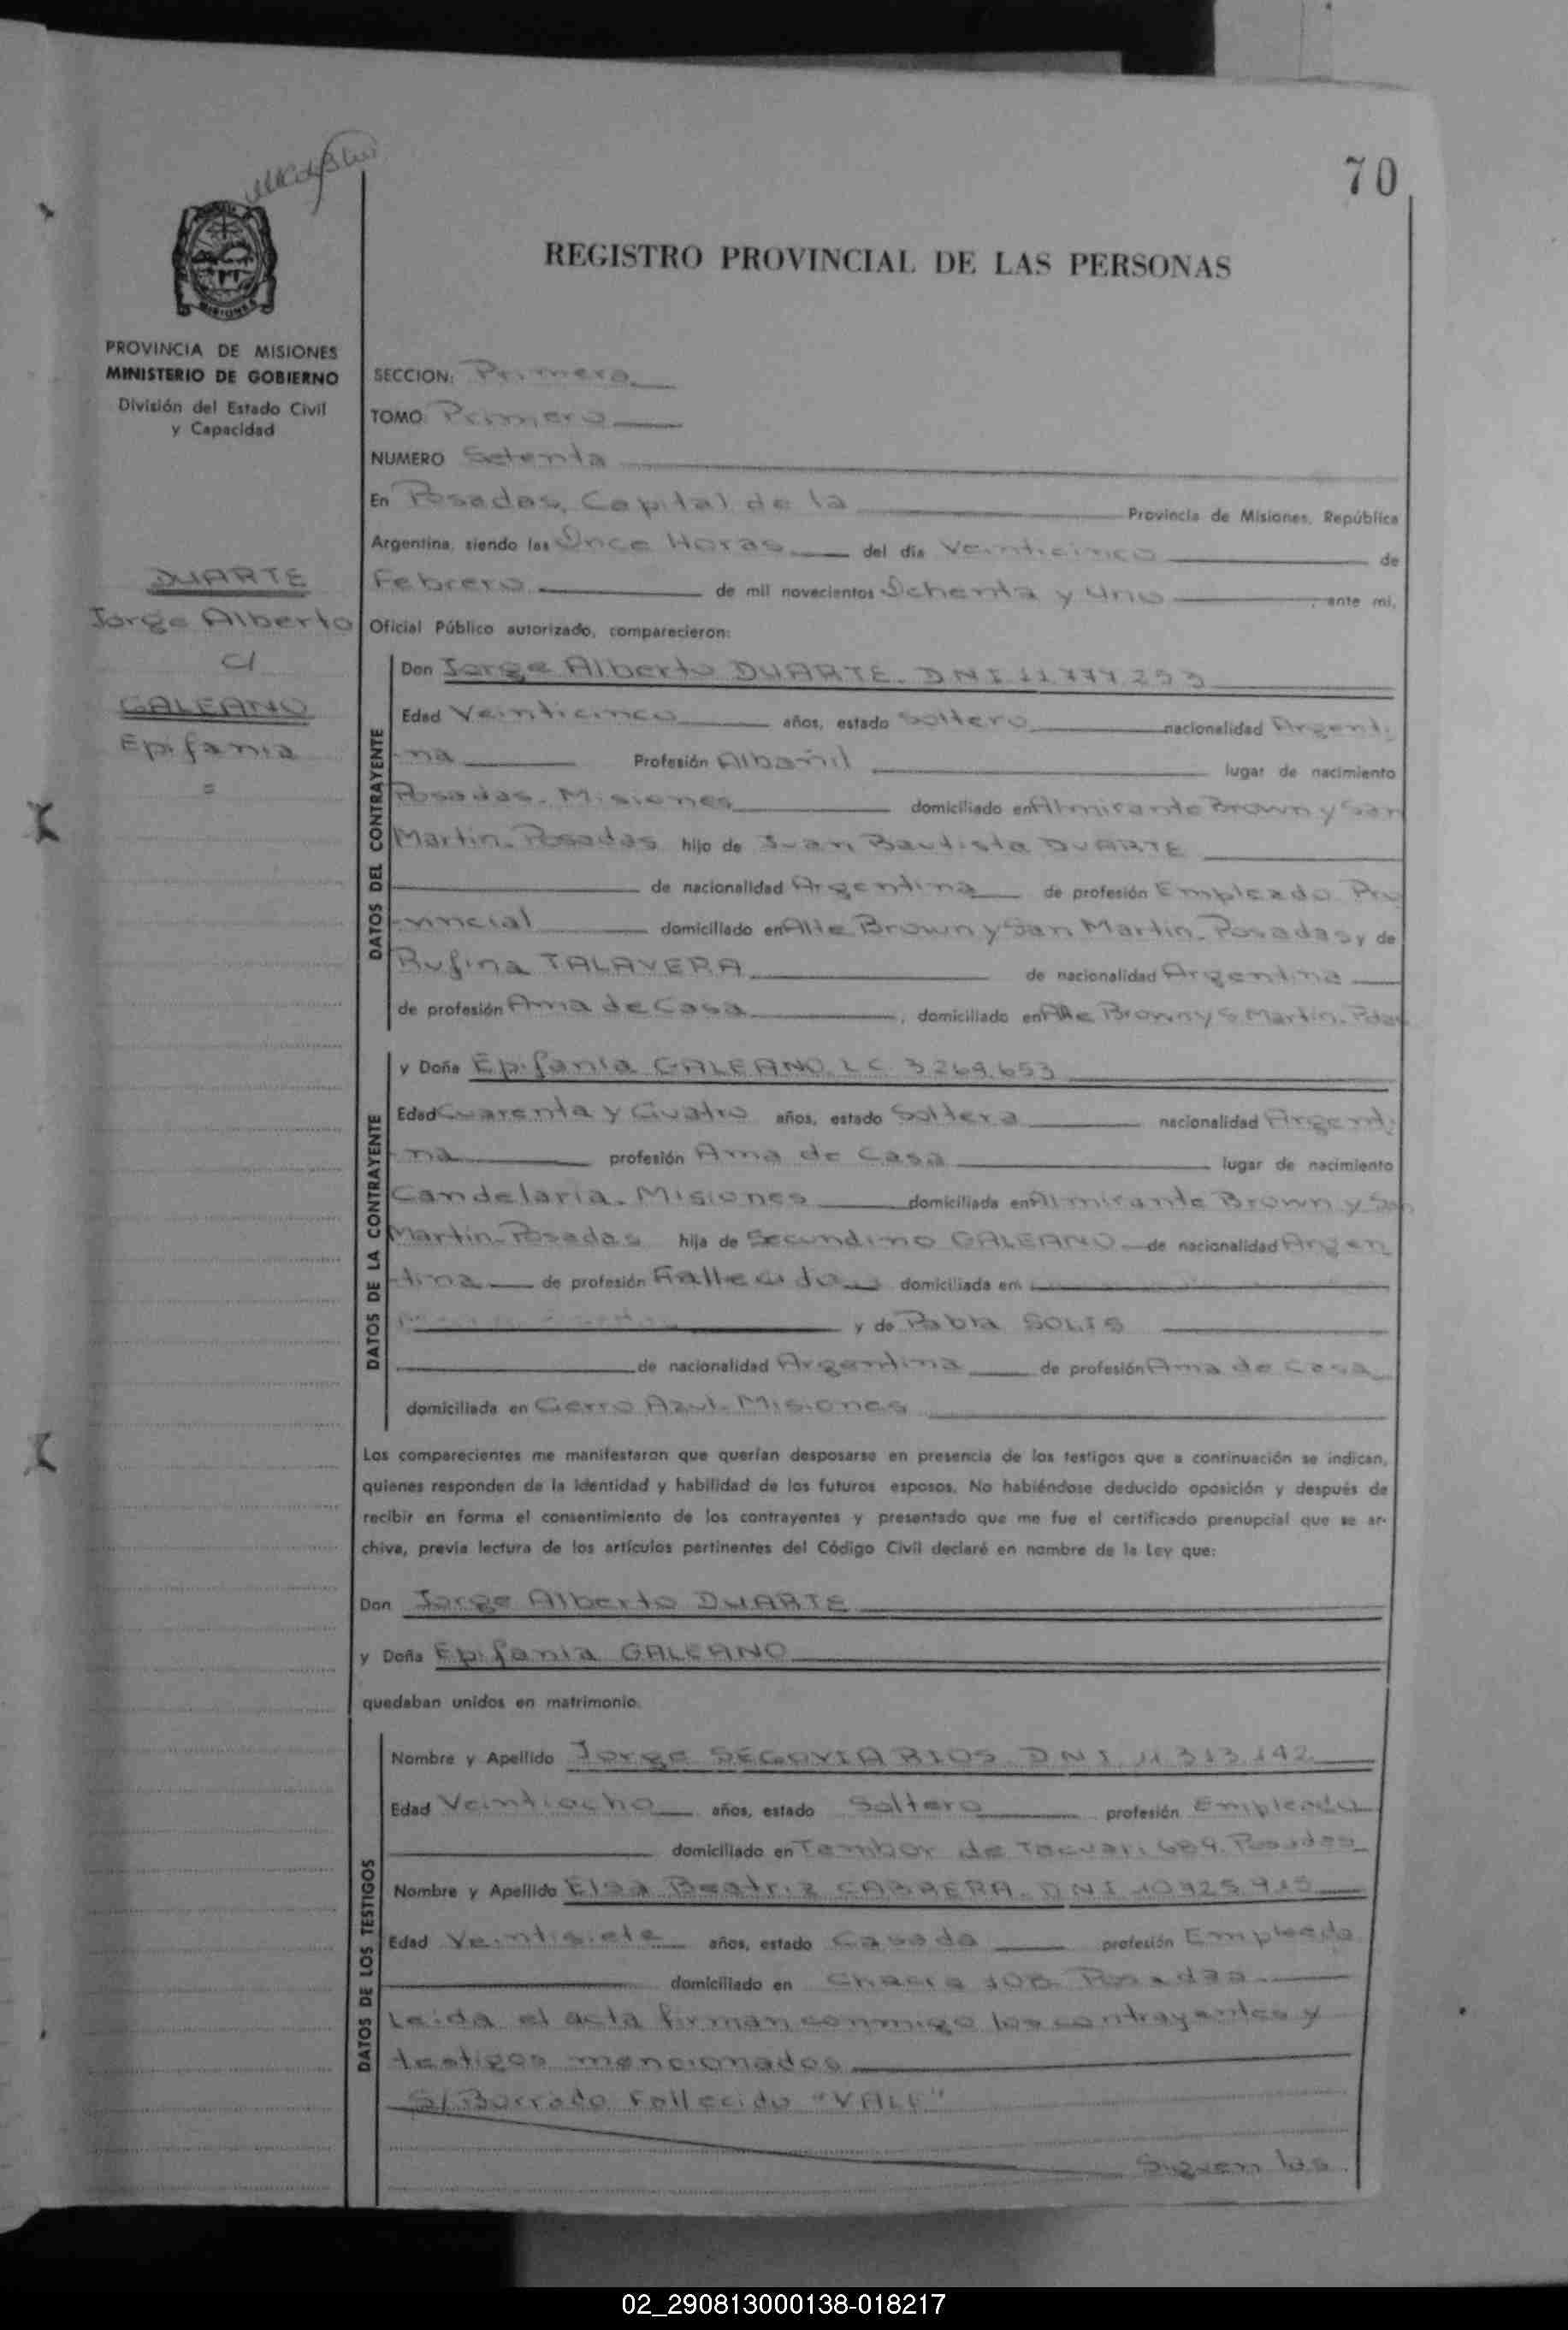 70
REGISTRO PROVINCIAL DE LAS PERSONAS
MISIONES
PROVINCIA DE MISIONES
MINISTERIO DE GOBIERNO
División del Estado Civil
y Capacidad
DUARTE
Jorge Alberto
c/
GALEANO
Epifania
=
SECCION: Primera
TOMO Primero
NUMERO Setenta
En Posadas, Capital de la Provincia de Misiones, República
Argentina, siendo las Once Horas del día Veinticinco de
Febrero de mil novecientos Ochenta y Uno, ante mi,
Oficial Público autorizado, comparecieron:
DATOS DEL CONTRAYENTE
Don Jorge Alberto DUARTE. DNI 11.777.253
Edad Veinticinco años, estado Soltero nacionalidad Argenti
na Profesión Albañil lugar de nacimiento
Posadas. Misiones domiciliado en Almirante Brown y San
Martin. Posadas hijo de Juan Bautista DUARTE
de nacionalidad Argentina de profesión Empleado Pro
vincial domiciliado en Alte Brown y San Martin. Posadas y de
Rufina TALAVERA de nacionalidad Argentina
de profesión Ama de Casa, domiciliado en Alte Brown y S. Martin. Pdas
DATOS DE LA CONTRAYENTE
y Doña Epifania GALEANO. LC 3.269.653
Edad Cuarenta y Cuatro años, estado Soltera nacionalidad Argenti
na profesión Ama de Casa lugar de nacimiento
Candelaria. Misiones domiciliada en Almirante Brown y San
Martin. Posadas hija de Secundino GALEANO de nacionalidad Argen
tina de profesión Fallecido domiciliada en
y de Pabla SOLIS
de nacionalidad Argentina de profesión Ama de Casa
domiciliada en Cerro Azul. Misiones
Los comparecientes me manifestaron que querían desposarse en presencia de los testigos que a continuación se indican,
quienes responden de la identidad y habilidad de los futuros esposos. No habiéndose deducido oposición y después de
recibir en forma el consentimiento de los contrayentes y presentado que me fue el certificado prenupcial que se ar-
chiva, previa lectura de los artículos pertinentes del Código Civil declaré en nombre de la Ley que:
Don Jorge Alberto DUARTE
y Doña Epifania GALEANO
quedaban unidos en matrimonio.
DATOS DE LOS TESTIGOS
Nombre y Apellido Jorge SEGOVIA RIOS. DNI. 11.313.142
Edad Veintiocho años, estado Soltero profesión Empleado
domiciliado en Tambor de Tacuari 689. Posadas
Nombre y Apellido Elsa Beatriz CABRERA. DNI 10.925.915
Edad Veintisiete años, estado Casada profesión Empleada
domiciliado en Chacra 108 Posadas
Leida el acta firman conmigo los contrayentes y
testigos mencionados
S/Borrado Fallecido "VALE"
Siguen las
02_290813000138-018217